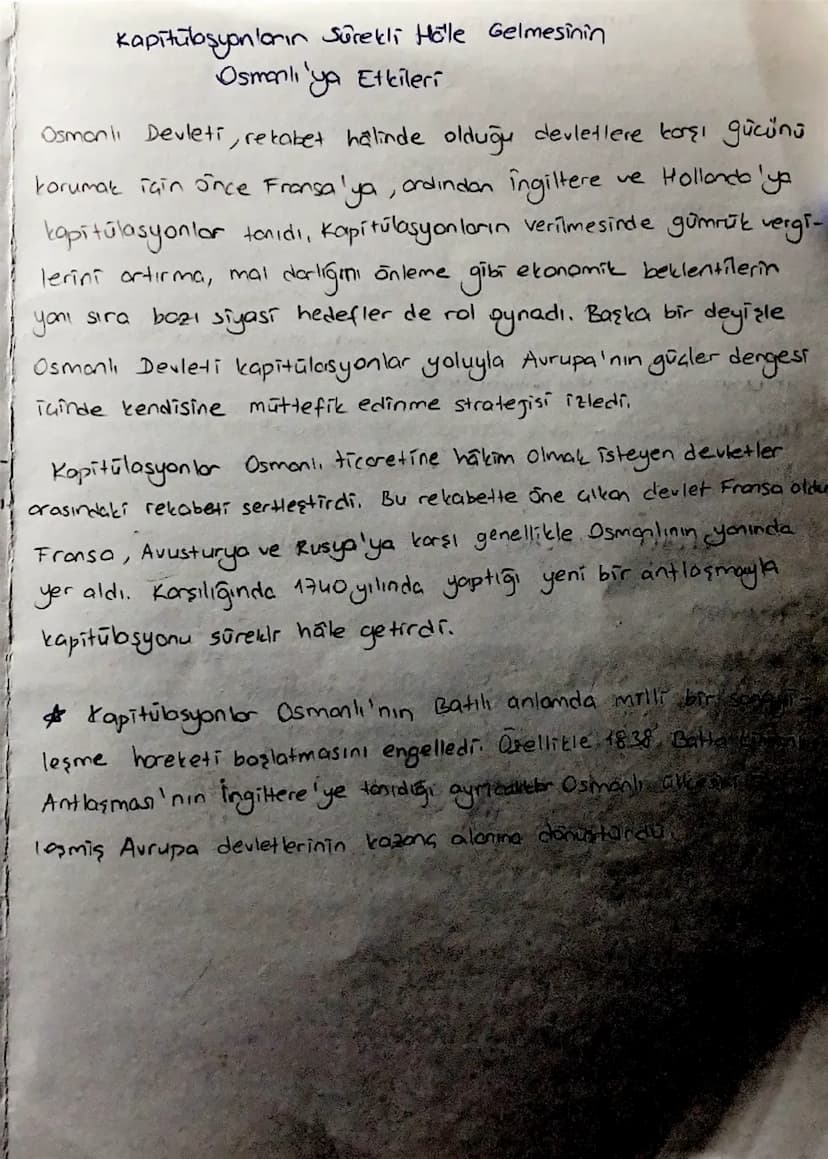 Kapitülasyonların Sürekli Hâle Gelmesinin
Osmanlı'ya Etkileri
Osmanlı Devleti, rekabet hâlinde olduğu devletlere karşı gücünü
korumak için önce Fransa'ya, ardından İngiltere ve Hollanda'ya
kapitülasyonlar tanıdı. Kapitülasyonların verilmesinde gümrük vergi-
lerini artırma, mal darlığını önleme gibi ekonomik beklentilerin
yanı sıra bazı siyasi hedefler de rol oynadı. Başka bir deyişle
Osmanlı Devleti kapitülasyonlar yoluyla Avrupa'nın güçler dengesi
içinde kendisine müttefik edinme stratejisi izledi.
Kapitülasyonlar Osmanlı ticaretine hâkim olmak isteyen devletler
arasındaki rekabeti sertleştirdi. Bu rekabette öne çıkan devlet Fransa oldu
Fransa, Avusturya ve Rusya'ya karşı genellikle Osmanlının yanında
yer aldı. Karşılığında 1740 yılında yaptığı yeni bir antlaşmayla
kapitülasyonu sürekli hâle getirdi.
★ Kapitülasyonlar Osmanlı'nın Batılı anlamda milli bir
leşme hareketi başlatmasını engelledi. Özellikle 1838
Antlaşması'nın İngiltere'ye tanıdığı ayrıcalıklar Osmanlı
leşmiş Avrupa devletlerinin kazanç alanına dönüştürdü.